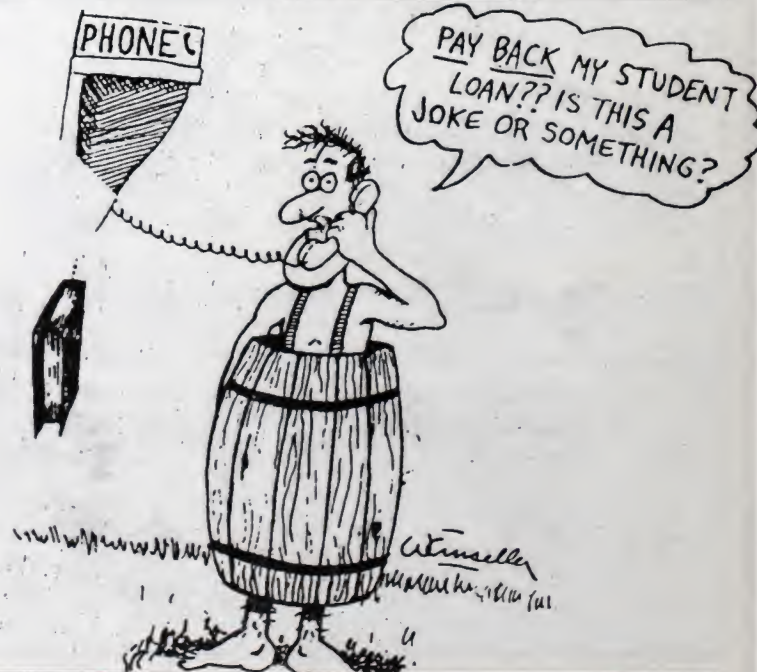 PHONE
PAY BACK MY STUDENT
LOAN?? IS THIS A
JOKE OR SOMETHING?
WKinsella